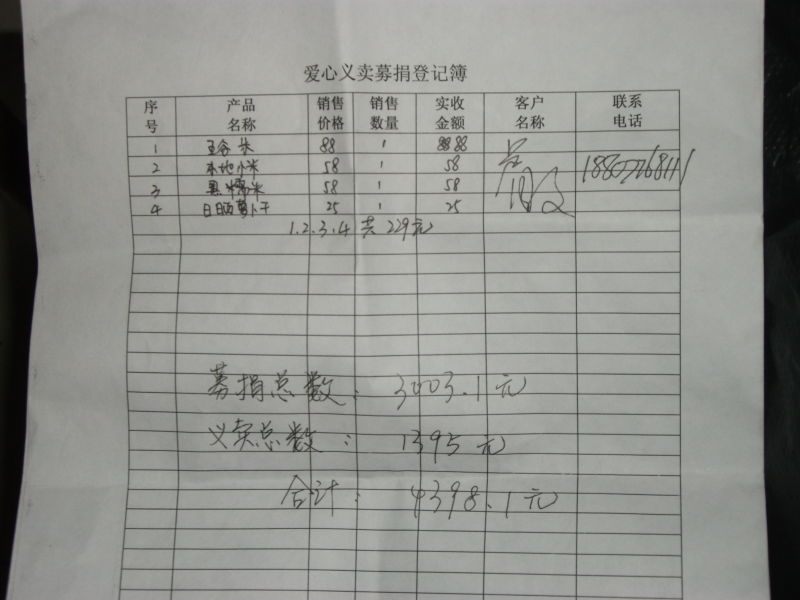 爱心义卖募捐登记簿
序号 产品名称 销售价格 销售数量 实收金额 客户名称 联系电话
1 五谷米 88 1 88
2 本地小米 58 1 58
3 黑糯米 58 1 58
4 日晒萝卜干 25 1 25
1.2.3.4 共 229元
募捐总数: 3003.1元
义卖总数: 1395元
合计: 4398.1元